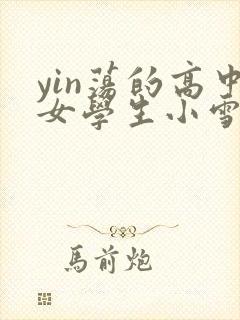 yin蕩的高中
女學生小雪
馬前炮